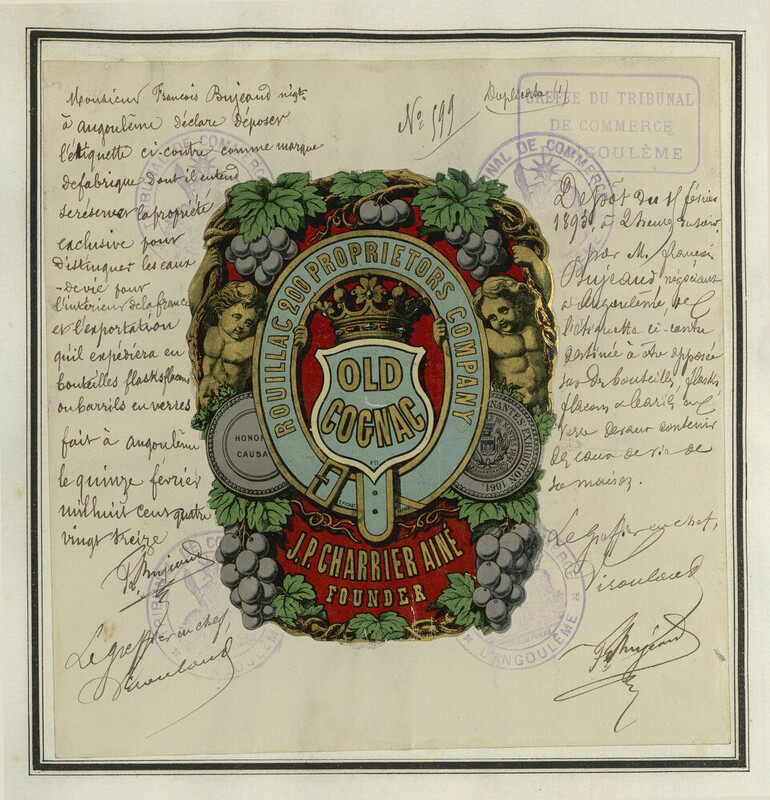 Monsieur Francois Bujeaud négt.
à angoulême déclare déposer
l'étiquette ci-contre comme marque
de fabrique dont il entend
se réserver la propriété
exclusive pour
distinguer les eaux
-de vie pour
l'intérieur de la france
et l'exportation
qu'il expédiera en
bouteilles flasks flacons
ou barrils en verres
fait à angoulême
le quinze fevrier
mil huit cent quatre
vingt treize
Fs Bujeaud
Le greffier en chef,
No 599
Duplicata (1)
GREFFE DU TRIBUNAL
DE COMMERCE
D'ANGOULÊME
NAL DE COMMERCE
ROUILLAC 200 PROPRIETORS COMPANY
OLD
COGNAC
HONOR
CAUSA
NANTES EXHIBITION
1861
J.P. CHARRIER AINÉ
FOUNDER
Dépôt du 15 février
1893, à 2 heures du soir
par M. françois
Bujeaud, négociant
à Angoulême, de
l'étiquette ci-contre
destinée à être apposée
sur des bouteilles, flasks
flacons & barils en
verre devant contenir
des eaux de vie de
sa maison.
Le Greffier en chef,
Fs Bujeaud
D'ANGOULÊME